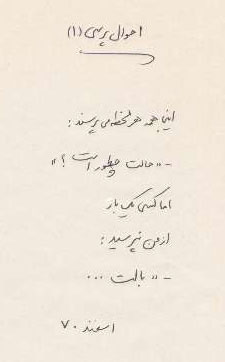 احوال پرسی (۱)
اینجا همه هر لحظه می پرسند :
- «حالت چطور است ؟»
اما کسی یک بار
از من نپرسید :
- «بالت ...
اسفند ۷۰